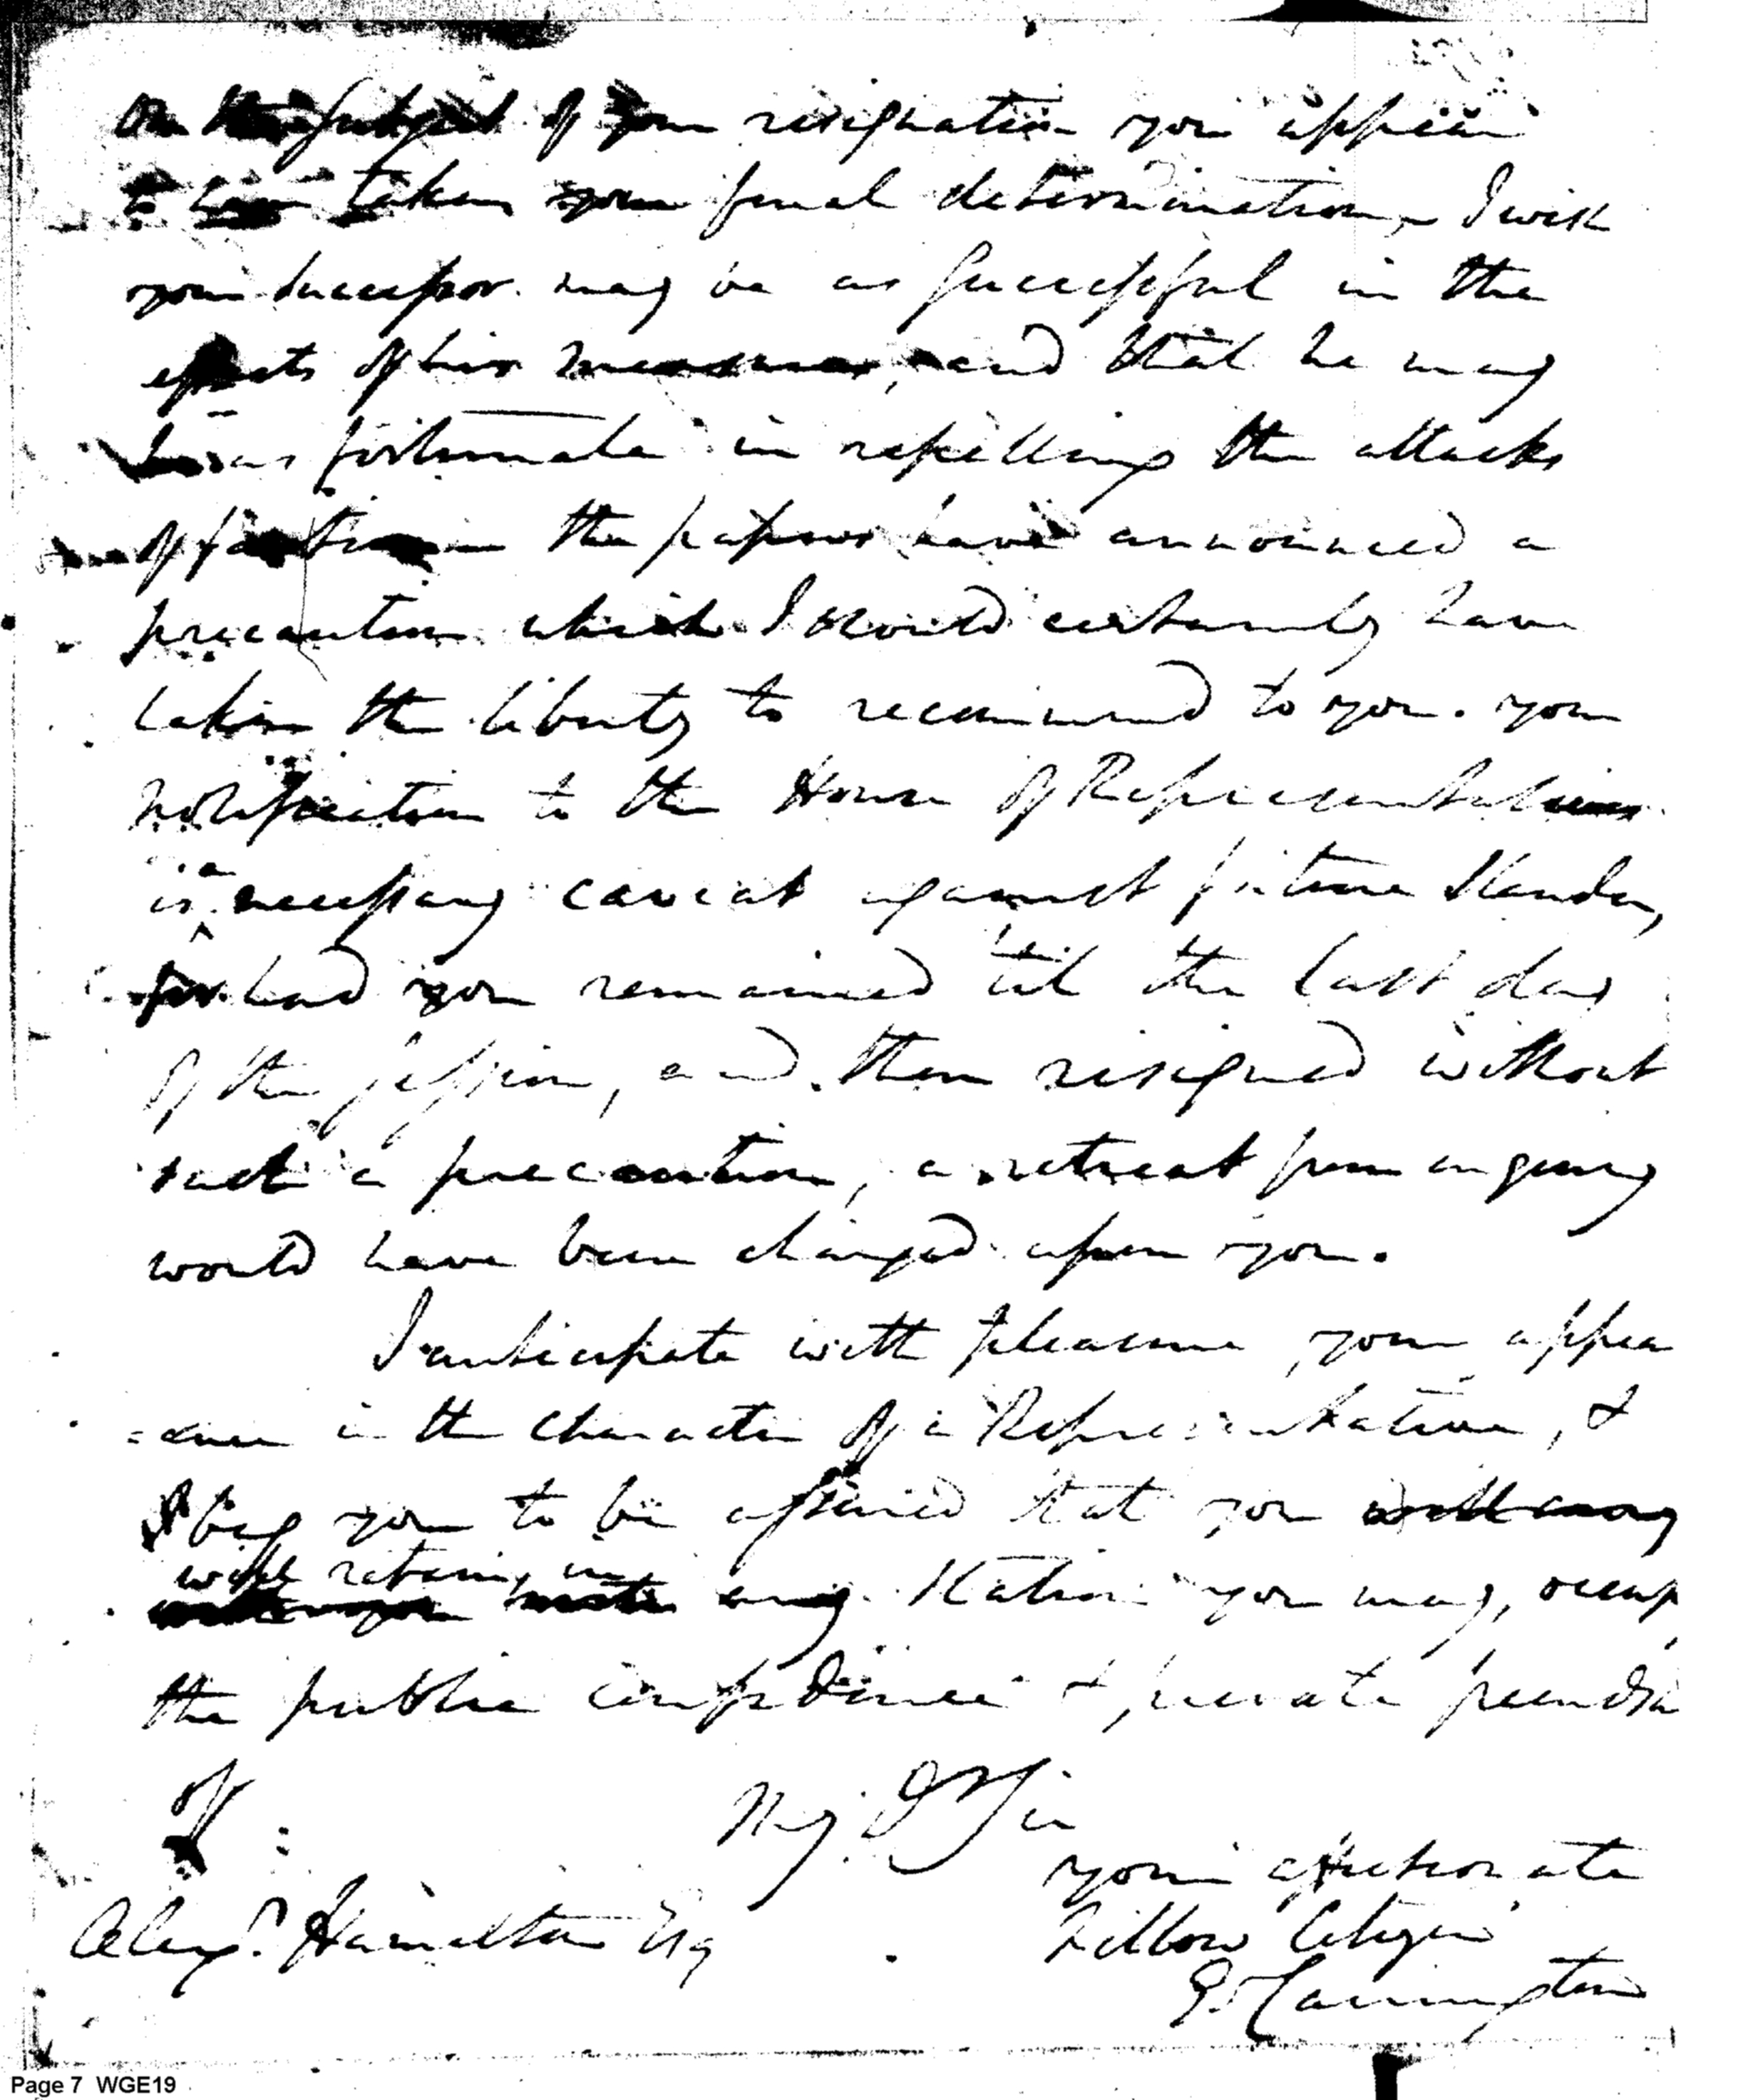 On the subject of your resignation you appear
to have taken your final determination, I wish
your successor may be as successful in the
effects of his measures, and that he may
be as fortunate in repelling the attacks
of faction the papers have announced a
precaution which I should certainly have
taken the liberty to recommend to you. your
notification to the House of Representatives
is a necessary caveat against future slander,
for had you remained 'til the last day
of the session, and then resigned without
such a precaution, a retreat from enquiry
would have been charged upon you.
I anticipate with pleasure, your appea
=ance in the character of a Representative, &
I beg you to be assured that you
will retain, in
any station you may, occup
the public confidence & private friendsh
of
My D Sir
your affectionate
Alexr. Hamilton Esq
Fellow Citizen
Ed Carrington
Page 7 WGE19